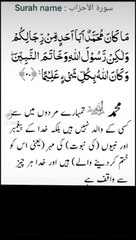 Surah name : سورة الأحزاب
مَا كَانَ مُحَمَّدٌ اَبَآ اَحَدٍ مِّنْ رِّجَالِكُمْ
وَلٰكِنْ رَّسُوْلَ اللّٰهِ وَخَاتَمَ النَّبِيّٖنَ ؕ
وَكَانَ اللّٰهُ بِكُلِّ شَيْءٍ عَلِيْمًا ﴿۴۰﴾
محمد ﷺ تمہارے مردوں میں سے
کسی کے والد نہیں ہیں بلکہ خدا کے پیغمبر
اور نبیوں (کی نبوت) کی مہر (یعنی اس کو
ختم کردینے والے) ہیں اور خدا ہر چیز
سے واقف ہے